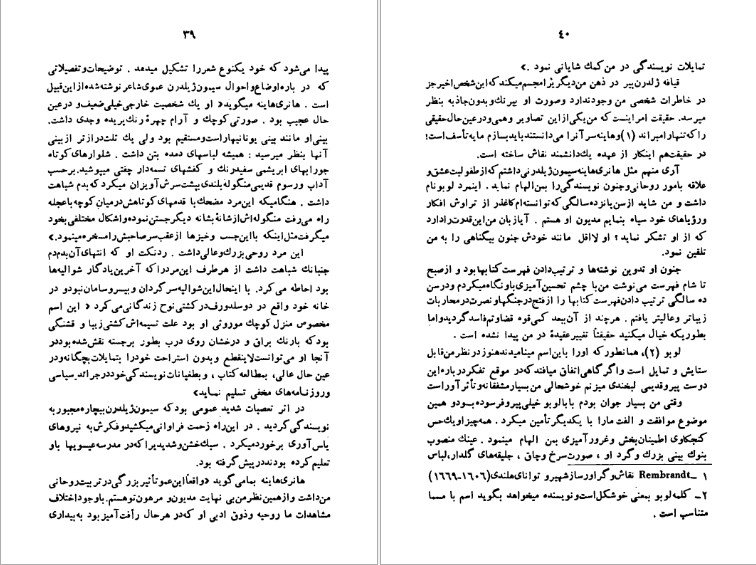 ۳۹
پیدا می‌شود که خود یکنوع شعررا تشکیل میدهد . توضیحات و تفصیلاتی
که در باره اوضاع و احوال سیمون ژیلدرن عموی شاعر نوشته شده از این قبیل
است . هانری‌هاینه میگوید « او یک شخصیت خارجی خیلی ضعیف و در عین
حال عجیب بود . صورتی کوچک و آرام چهرهٔ رنگ پریده وجدی داشت.
بینی او مانند بینی یونانیها راست و مستقیم بود ولی یک ثلث درازتر از بینی
آنها بنظر میرسید : همیشه لباسهای دمده بتن داشت . شلوارهای کوتاه
جورابهای ابریشمی سفیدرنگ و کفشهای تسمه‌دار چفتی میپوشید.برحسب
آداب ورسوم قدیمی منگوله بلندی بپشت سرش آویزان میکرد که بدم شباهت
داشت . هنگامیکه این مرد مضحک با قدمهای کوتاهش درمیان کوچه باعجله
راه می‌رفت منگوله‌اش از شانهٔ بشانه دیگر جستن نموده و اشکال مختلفی بخود
میگرفت مثل اینکه با این جست وخیزها از عقب سر صاحبش را مسخره مینمود.»
این مرد روحی بزرگ و عالی داشت . ردنکت او که انتهای آن بدم دم
جنبانک شباهت داشت از هرطرف این مرد را که آخرین یادگار شوالیه‌ها
بود احاطه می‌کرد. با اینحال این شوالیه سرگردان و بیسروسامان نبود و در
خانه خود واقع در دوسلدورف در کشتی نوح زندگانی می‌کرد « این اسم
مخصوص منزل کوچک موروثی او بود علت تسمیه‌اش کشتی زیبا و قشنگی
بود که بارنک براق و درخشان روی درب بطور برجسته نقش شده بود در
آنجا او می‌توانست لاینقطع و بدون استراحت خودرا بتمایلات بچگانه و در
عین حال عالی، بمطالعه کتاب ، و بطغیانات نویسندگی خود در جرائد سیاسی
و روزنامه‌های مخفی تسلیم نماید»
در اثر تعصبات شدید عمومی بود که سیمون ژیلدرن بیچاره مجبور به
نویسندگی گردید . در این راه زحمت فراوانی میکشید و فکرش به نیروهای
یأس آوری برخورد میکرد . سبک خشن و شدیدی را که در مدرسه عیسویها باو
تعلیم کرده بودند در پیش گرفته بود.
هانری‌هاینه بما می‌گوید «واقعا این عمو تأثیر بزرگی در تربیت روحانی
من داشت و از همین نظر من بی نهایت مدیون و مرهون او هستم. با وجود اختلاف
مشاهدات ما روحیه و ذوق ادبی او که در هر حال رأفت آمیز بود به بیداری
۴۰
تمایلات نویسندگی در من کمک شایانی نمود . »
قیافه ژلدرن پیر در ذهن من دیگر بژا مجسم میکند که این شخص اخیر جز
در خاطرات شخصی من وجود ندارد و صورت او بیرنگ و بدون جاذبه بنظر
میرسد. حقیقت امر اینست که من یکی از این تصاویر وهمی و در عین حال حقیقی
را که تنها رامبراند (۱) و هاینه سر آنرا می‌دانستند باید بسازم مایه تأسف است؛
در حقیقت هم اینکار از عهده یک دانشمند نقاش ساخته است.
آری منهم مثل هانری‌هاینه سیمون ژیلدرنی داشتم که از طفولیت عشق و
علاقه بامور روحانی و جنون نویسندگی را بمن الهام نمود. اینمرد لوبو نام
داشت و من شاید از سن پانزده سالگی که توانسته‌ام کاغذ را از تراوش افکار
و رؤیاهای خود سیاه بنمایم مدیون او هستم . آیا زبان من این قدرت را دارد
که از او تشکر نماید؛ او لااقل مانند خودش جنون بیگناهی را به من
تلقین نمود.
جنون او تدوین نوشته‌ها و ترتیب دادن فهرست کتابها بود و از صبح
تا شام فهرست می‌نوشت من با چشم تحسین آمیزی باو نگاه میکردم و در سن
ده سالگی ترتیب دادن فهرست کتابها را از فتح در جنگها و نصرت در محاربات
زیباتر و عالیتر یافتم . هرچند از آن ببعد کمی قوه قضاوتم فاسد گردید و اما
بطوریکه خیال میکنید حقیقتاً تغییر عقیدهٔ در من پیدا نشده است .
لوبو (۲)، همانطور که اورا باین اسم مینامیدند هنوز در نظر من قابل
ستایش و تمایل است و اگر گاهی اتفاق میافتد که در موقع تفکر در باره این
دوست پیر و قدیمی لبخندی میزنم خوشحالی من بسیار مشفقانه و تأثر آور است
وقتی من بسیار جوان بودم با بالوبو خیلی پیر و فرسوده بود و همین
موضوع موافقت و الفت مارا با یکدیگر تأمین میکرد . همه چیز او یک حس
کنجکاوی اطمینان بخش و غرور آمیزی بمن الهام مینمود . عینک منصوب
بنوک بینی بزرگ و گرد او ، صورت سرخ و چاق ، جلیقه‌های گلدار، لباس
۱ ــ Rembrandt نقاش و گراور ساز شهیر و توانای هلندی (۱۶۰۶-۱۶۶۹)
۲ــ کلمه لوبو بمعنی خوشگل است و نویسنده میخواهد بگوید اسم با مسما
متناسب است .